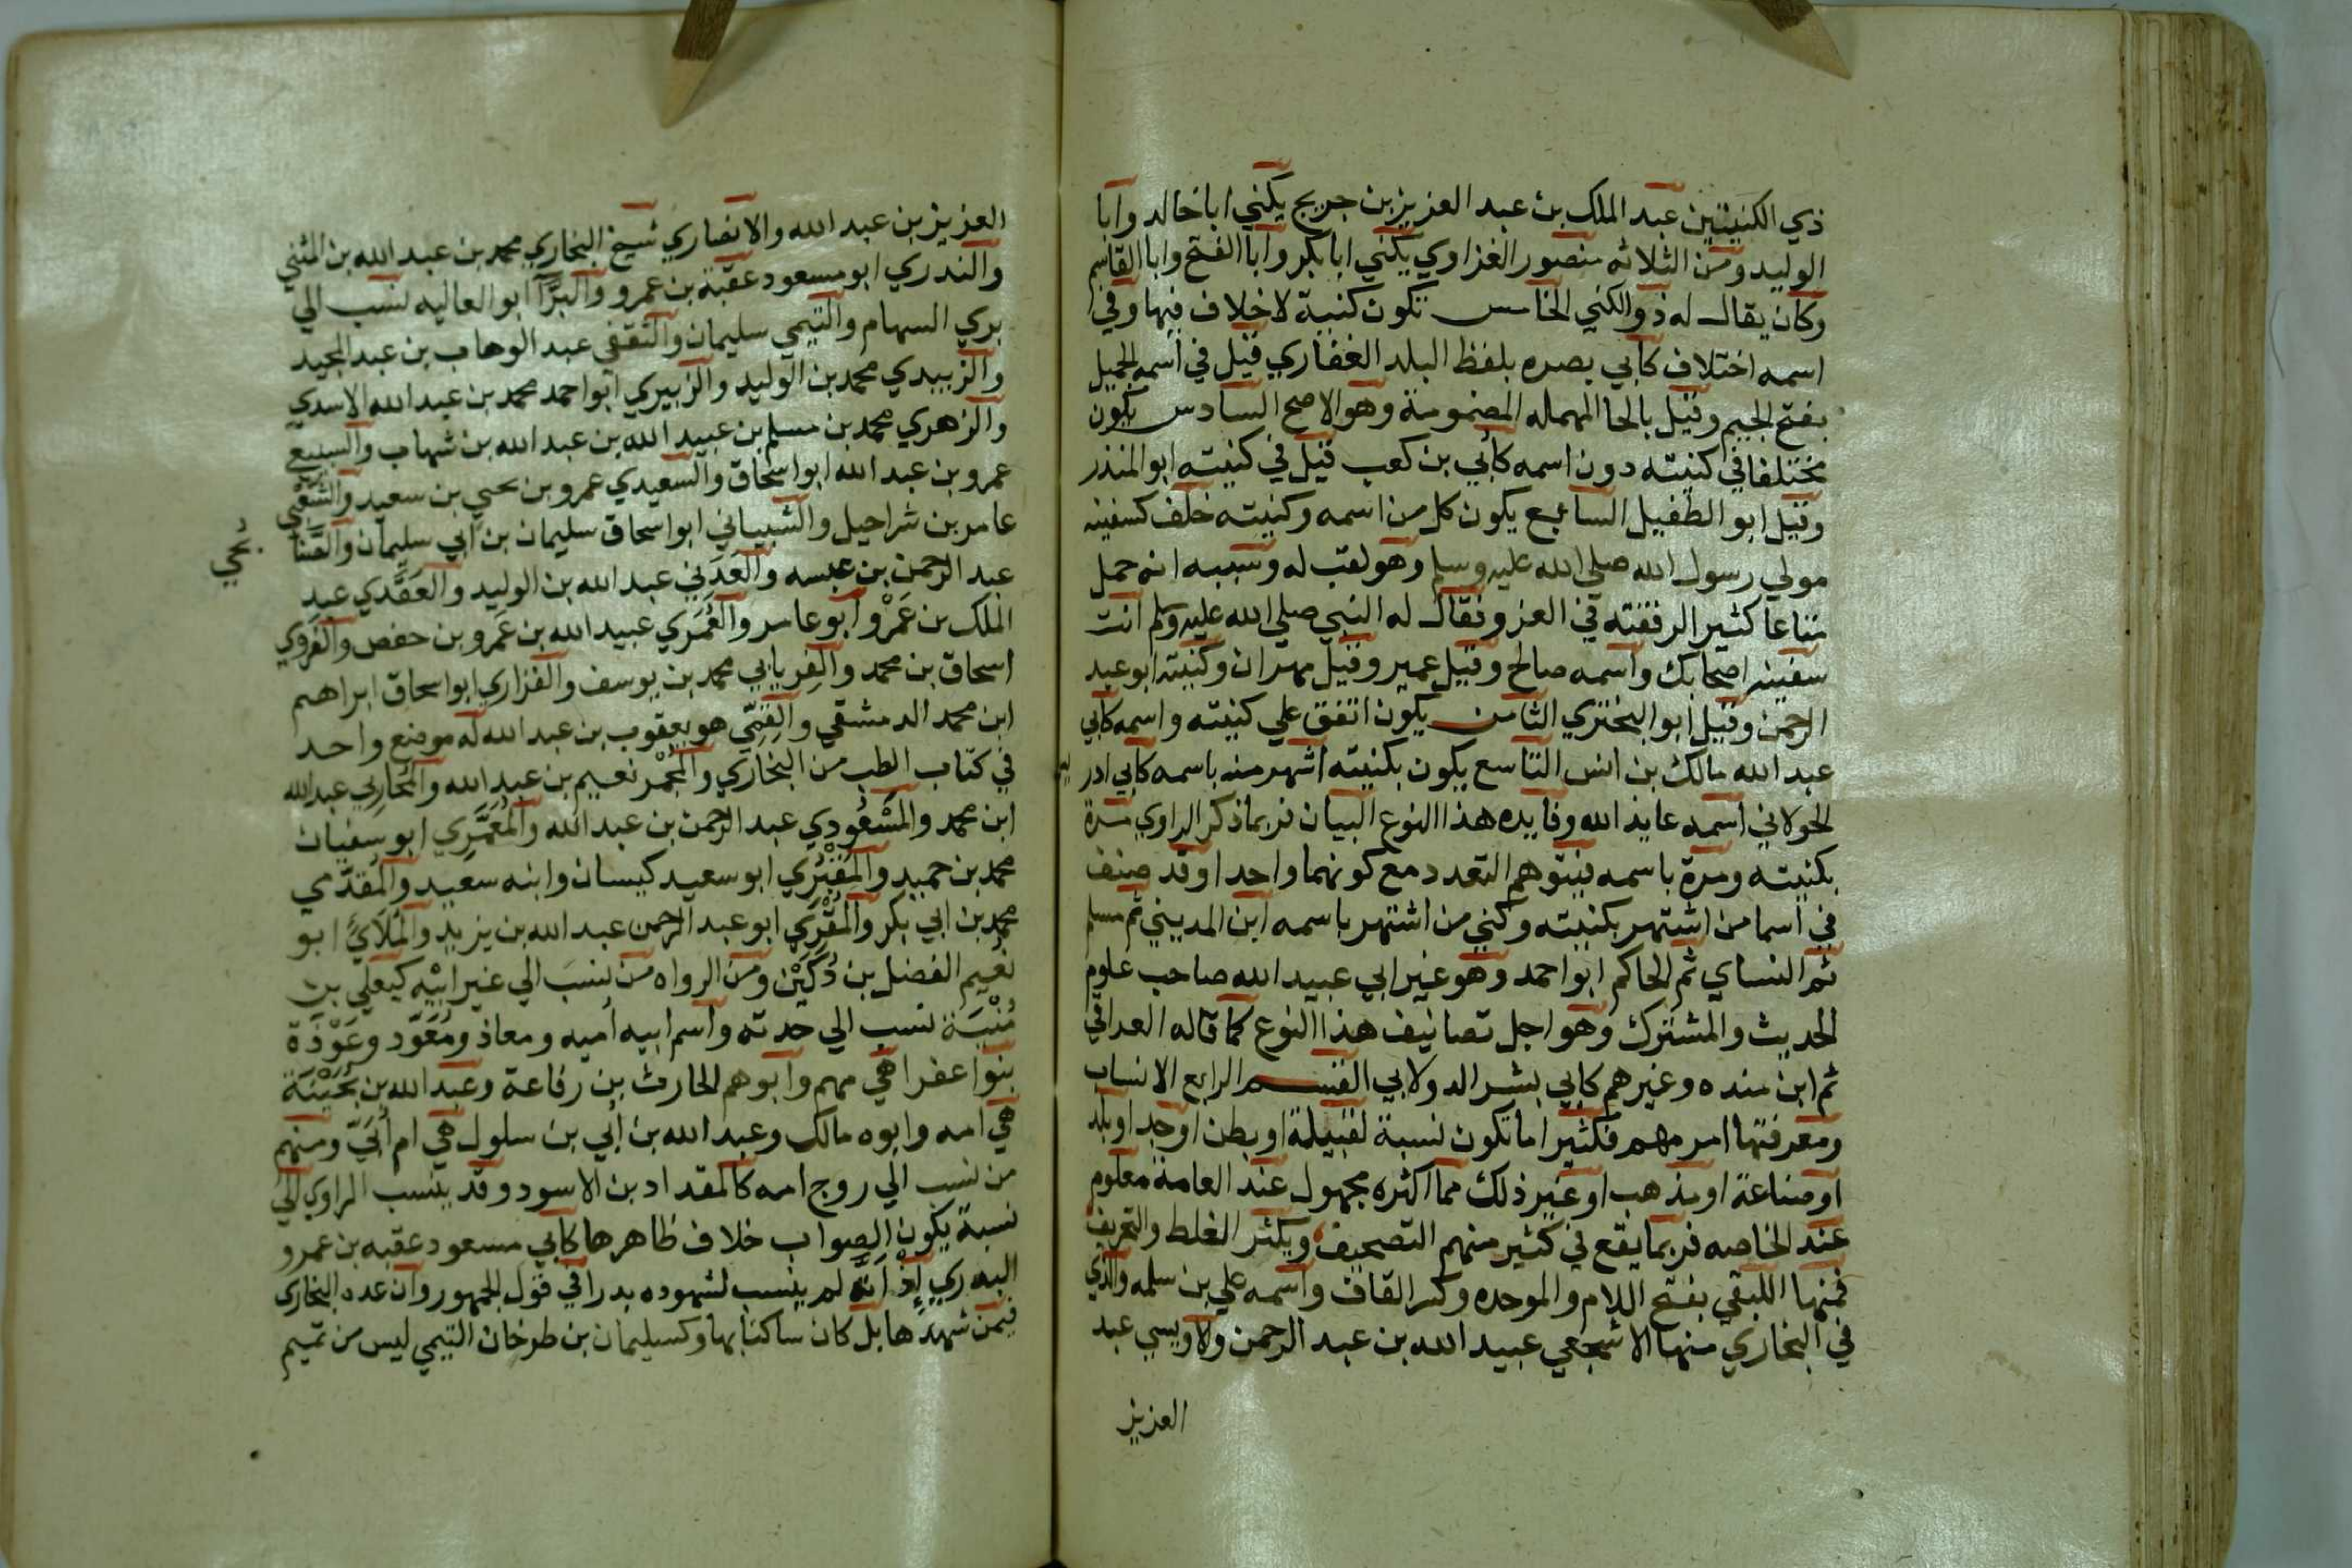 ذي الكنيتين عبد الملك بن عبد العزيز بن جريج يكني ابا خالد وابا
الوليد ومن الثلاثه منصور الغزاوي يكني ابا بكر وابا الفتح وابا القاسم
وكان يقال له ذو الكني الخامس تكون كنية لا خلاف فيها وفي
اسمه اختلاف كابي بصره بلفظ البلد الغفاري قيل في اسمه الجميل
بفتح الجيم وقيل بالحا المهمله المضمومة وهو الاصح السادس يكون
مختلفا في كنيته دون اسمه كأبي بن كعب قيل في كنيته ابو المنذر
وقيل ابو الطفيل السابع يكون كل من اسمه وكنيته خلف كسفينه
مولي رسول الله صلي الله عليه وسلم وهو لقب له وسببه انه حمل
متاعا كثير الرفقته في الغزو فقال له النبي صلي الله عليه وسلم انت
سفينه اصحابك واسمه صالح وقيل عمير وقيل مهران وكنيته ابو عبد
الرحمن وقيل ابو البختري الثامن يكون اتفق علي كنيته واسمه كابي
عبد الله مالك بن انس التاسع يكون بكنيته اشهر منه باسمه كابي ادر
الخولاني اسمه عايذ الله وفايده هذا النوع البيان فربما ذكر الراوي مرة
بكنيته ومرة باسمه فيتوهم التعدد مع كونهما واحدا وقد صنف
في اسما من اشتهر بكنيته وكني من اشتهر باسمه ابن المديني ثم مسلم
ثم النساي ثم الحاكم ابو احمد وهو غير ابي عبيد الله صاحب علوم
الحديث والمشترك وهو اجل تصانيف هذا النوع كما قاله العراقي
ثم ابن منده وغيرهم كابي بشر الدولابي القسم الرابع الانساب
ومعرفتها امر مهم فكثير اما تكون نسبة لقبيلة او بطن او جد او بلد
او صناعة او مذهب او غير ذلك مما اكثره مجهول عند العامة معلوم
عند الخاصه فربما يقع في كثير منهم التصحيف ويكثر الغلط والتحريف
فمنها اللبقي بفتح اللام والموحده وكسر القاف واسمه علي بن سلمه والذي
في البخاري منها الاشجعي عبيد الله بن عبد الرحمن والاويسي عبد
العزيز
العزيز بن عبد الله والانصاري شيخ البخاري محمد بن عبد الله بن المثني
والبدري ابو مسعود عقبة بن عمرو والبرّآ ابو العاليه نسب الي
بري السهام والتيمي سليمان والثقفي عبد الوهاب بن عبد المجيد
والزبيدي محمد بن الوليد والزبيري ابو احمد محمد بن عبد الله الاسدي
والزهري محمد بن مسلم بن عبيد الله بن عبد الله بن شهاب والسبيع
عمرو بن عبد الله ابو اسحاق والسعيدي عمرو بن يحيي بن سعيد والشعبي
عامر بن شراحيل والشيباني ابو اسحاق سليمان بن ابي سليمان والصنا
بحي
عبد الرحمن بن عبسه والعدني عبد الله بن الوليد والعقدي عبد
الملك بن عمرو ابو عامر والعمري عبيد الله بن عمرو بن حفص والفروي
اسحاق بن محمد والفريابي محمد بن يوسف والفزاري ابو اسحاق ابراهيم
ابن محمد الدمشقي والقمّي هو يعقوب بن عبد الله له موضع واحد
في كتاب الطب من البخاري والمجمر نعيم بن عبد الله والمحاربي عبد الله
ابن محمد والمسعودي عبد الرحمن بن عبد الله والمعمّري ابو سفيان
محمد بن حميد والمقبري ابو سعيد كيسان وابنه سعيد والمقدّمي
محمد بن ابي بكر والمقري ابو عبد الرحمن عبد الله بن يزيد والملائي ابو
نعيم الفضل بن دكين ومن الرواه من نسب الي غير ابيه كيعلي بن
منية نسب الي جدته واسم ابيه اميه ومعاذ ومعوّد وعوذة
بنوا عفرا هي مهم وابوهم الحارث بن رفاعة وعبد الله بن بحينة
هي امه وابوه مالك وعبد الله بن أبي بن سلول هي ام أبيّ ومنهم
من نسب الي زوج امه كالمقداد بن الاسود وقد ينسب الراوي الي
نسبة يكون الصواب خلاف ظاهرها كابي مسعود عقبه بن عمرو
البدري إذ انّه لم ينسب لشهوده بدرا في قول الجمهور وان عده البخاري
فيمن شهدها بل كان ساكنا بها وكسليمان بن طرخان التيمي ليس من تميم